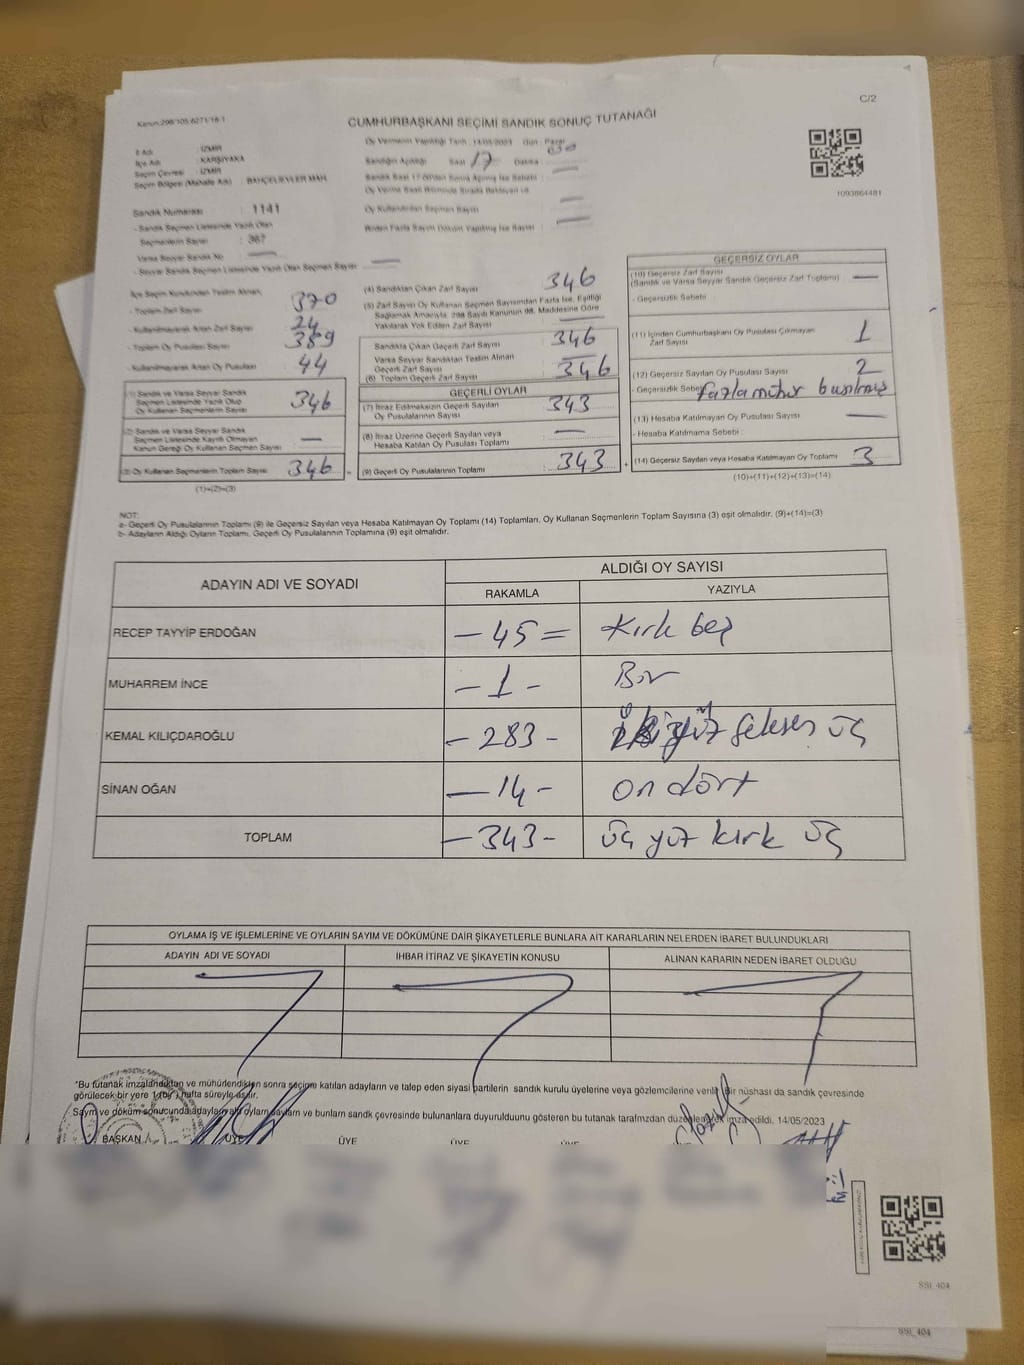 C/2
Kanun:298/105,6271/18-1
CUMHURBAŞKANI SEÇİMİ SANDIK SONUÇ TUTANAĞI
1093864481
İl Adı : İZMİR
İlçe Adı : KARŞIYAKA
Seçim Çevresi : İZMİR
Seçim Bölgesi (Mahalle Adı) : BAHÇELİEVLER MAH.
Sandık Numarası : 1141
- Sandık Seçmen Listesinde Yazılı Olan
Seçmenlerin Sayısı : 367
Varsa Seyyar Sandık No
- Seyyar Sandık Seçmen Listesinde Yazılı Olan Seçmen Sayısı
Oy Vermenin Yapıldığı Tarih : 14/05/2023 Gün : Pazar
Sandığın Açıldığı Saat 17 Dakika : 00
Sandık Saat 17:00'den Sonra Açılmış İse Sebebi :
Oy Kullandırılan Seçmen Sayısı
Birden Fazla Sayım Döküm Yapılmış İse Sayısı
İlçe Seçim Kurulundan Teslim Alınan;
- Toplam Zarf Sayısı 370
- Kullanılmayarak Artan Zarf Sayısı 24
- Toplam Oy Pusulası Sayısı 389
- Kullanılmayarak Artan Oy Pusulası 44
(1) Sandık ve Varsa Seyyar Sandık
Seçmen Listesinde Yazılı Olup
Oy Kullanan Seçmenlerin Sayısı 346
(2) Sandık ve Varsa Seyyar Sandık
Seçmen Listesinde Kayıtlı Olmayan
Kanun Gereği Oy Kullanan Seçmen Sayısı —
(3) Oy Kullanan Seçmenlerin Toplam Sayısı 346
(1)+(2)=(3)
(4) Sandıktan Çıkan Zarf Sayısı 346
(5) Zarf Sayısı Oy Kullanan Seçmen Sayısından Fazla İse, Eşitliği
Sağlamak Amacıyla, 298 Sayılı Kanunun 98. Maddesine Göre
Yakılarak Yok Edilen Zarf Sayısı —
Sandıkta Çıkan Geçerli Zarf Sayısı 346
Varsa Seyyar Sandıktan Teslim Alınan
Geçerli Zarf Sayısı —
(6) Toplam Geçerli Zarf Sayısı 346
GEÇERLİ OYLAR
(7) İtiraz Edilmeksizin Geçerli Sayılan
Oy Pusulalarının Sayısı 343
(8) İtiraz Üzerine Geçerli Sayılan veya
Hesaba Katılan Oy Pusulası Toplamı —
(9) Geçerli Oy Pusulalarının Toplamı : 343
GEÇERSİZ OYLAR
(10) Geçersiz Zarf Sayısı
(Sandık ve Varsa Seyyar Sandık Geçersiz Zarf Toplamı) —
- Geçersizlik Sebebi :
(11) İçinden Cumhurbaşkanı Oy Pusulası Çıkmayan
Zarf Sayısı 1
(12) Geçersiz Sayılan Oy Pusulası Sayısı 2
- Geçersizlik Sebebi fazla mühür basılmış
(13) Hesaba Katılmayan Oy Pusulası Sayısı —
- Hesaba Katılmama Sebebi :
(14) Geçersiz Sayılan veya Hesaba Katılmayan Oy Toplamı 3
(10)+(11)+(12)+(13)=(14)
NOT:
a- Geçerli Oy Pusulalarının Toplamı (9) ile Geçersiz Sayılan veya Hesaba Katılmayan Oy Toplamı (14) Toplamları, Oy Kullanan Seçmenlerin Toplam Sayısına (3) eşit olmalıdır. (9)+(14)=(3)
b- Adayların Aldığı Oyların Toplamı, Geçerli Oy Pusulalarının Toplamına (9) eşit olmalıdır.
ADAYIN ADI VE SOYADI ALDIĞI OY SAYISI
RAKAMLA YAZIYLA
RECEP TAYYİP ERDOĞAN — 45 = Kırk beş
MUHARREM İNCE — 1 - Bir
KEMAL KILIÇDAROĞLU — 283 - iki yüz seksen üç
SİNAN OĞAN — 14 - on dört
TOPLAM — 343 - üç yüz kırk üç
OYLAMA İŞ VE İŞLEMLERİNE VE OYLARIN SAYIM VE DÖKÜMÜNE DAİR ŞİKAYETLERLE BUNLARA AİT KARARLARIN NELERDEN İBARET BULUNDUKLARI
ADAYIN ADI VE SOYADI İHBAR İTİRAZ VE ŞİKAYETİN KONUSU ALINAN KARARIN NEDEN İBARET OLDUĞU
*Bu tutanak imzalandıktan ve mühürlendikten sonra seçime katılan adayların ve talep eden siyasi partilerin sandık kurulu üyelerine veya gözlemcilerine verilir. Bir nüshası da sandık çevresinde
görülecek bir yere 1 (bir) hafta süreyle asılır.
14/05/2023
BAŞKAN ÜYE ÜYE ÜYE ÜYE
SSI_404
SSI_404